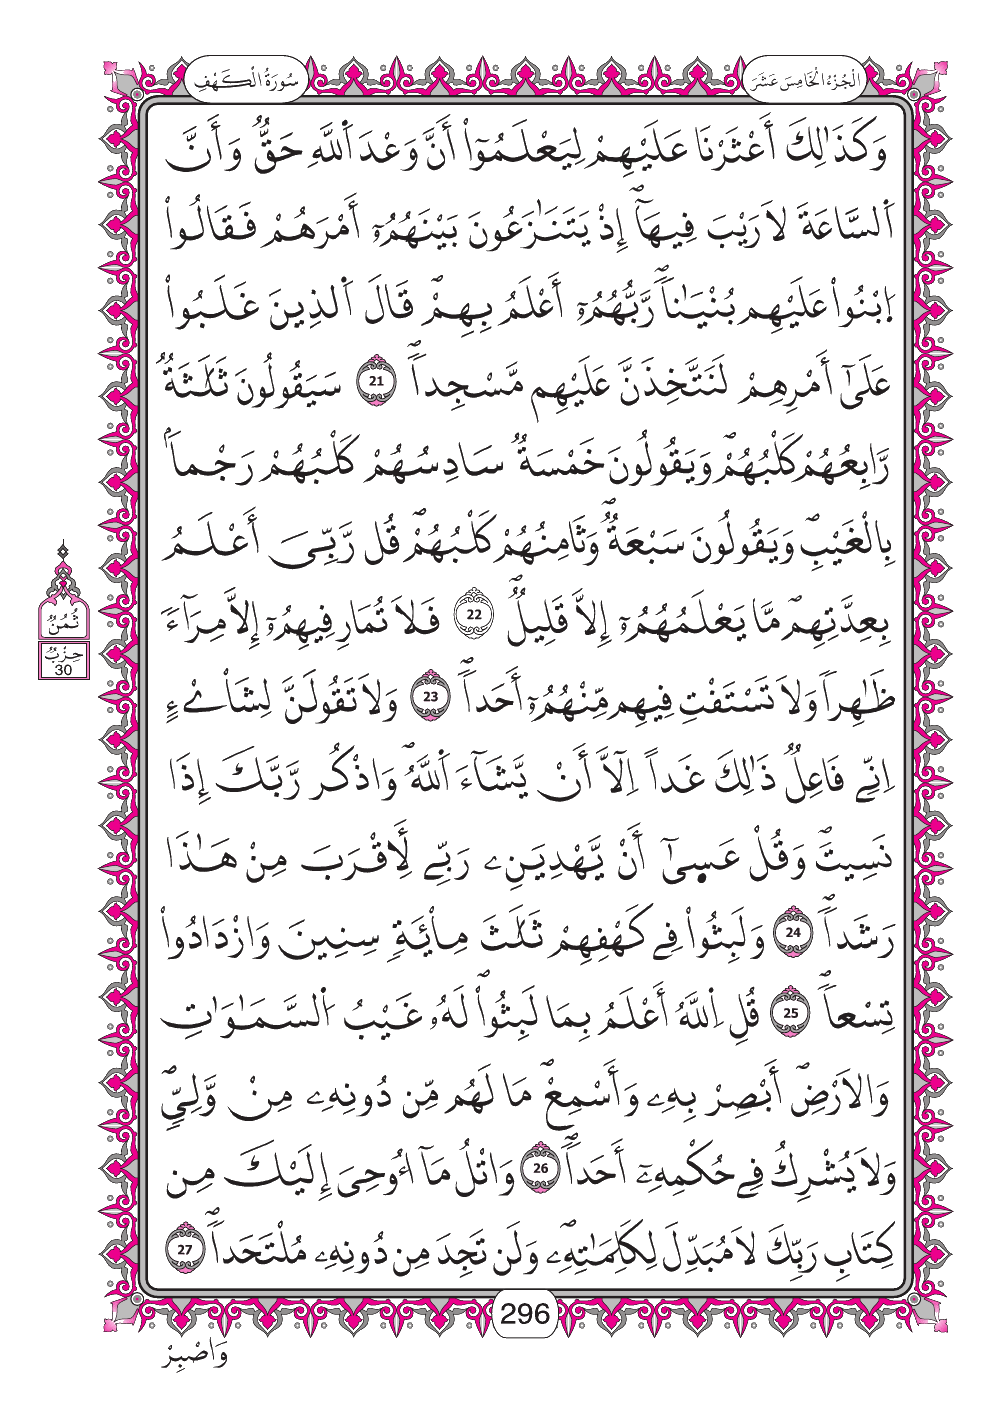 سُورَةُ الْكَهْفِ
الْجُزْءُ الْخَامِسَ عَشَرَ
وَكَذَٰلِكَ أَعْثَرْنَا عَلَيْهِمْ لِيَعْلَمُوٓاْ أَنَّ وَعْدَ اَ۬للَّهِ حَقٌّ وَأَنَّ
اَ۬لسَّاعَةَ لَا رَيْبَ فِيهَآۖ إِذْ يَتَنَٰزَعُونَ بَيْنَهُمُۥٓ أَمْرَهُمْ فَقَالُواْ
اُ۪بْنُواْ عَلَيْهِم بُنْيَٰناٗۖ رَّبُّهُمُۥٓ أَعْلَمُ بِهِمْۖ قَالَ اَ۬لذِينَ غَلَبُواْ
عَلَىٰٓ أَمْرِهِمْ لَنَتَّخِذَنَّ عَلَيْهِم مَّسْجِداٗۖ 21 سَيَقُولُونَ ثَلَٰثَةٞ
رَّابِعُهُمْ كَلْبُهُمْۖ وَيَقُولُونَ خَمْسَةٞ سَادِسُهُمْ كَلْبُهُمْ رَجْماَۢ
بِالْغَيْبِۖ وَيَقُولُونَ سَبْعَةٞۖ وَثَامِنُهُمْ كَلْبُهُمْۖ قُل رَّبِّيَ أَعْلَمُ
بِعِدَّتِهِمۖ مَّا يَعْلَمُهُمُۥٓ إِلَّا قَلِيلٞۖ 22 فَلَا تُمَارِ فِيهِمُۥٓ إِلَّا مِرَآءٗ
ظَٰهِراٗ وَلَا تَسْتَفْتِ فِيهِم مِّنْهُمُۥٓ أَحَداٗۖ 23 وَلَا تَقُولَنَّ لِشَاْےْءٍ
اِنِّے فَاعِلٞ ذَٰلِكَ غَداً اِلَّآ أَنْ يَّشَآءَ اَ۬للَّهُۖ وَاذْكُر رَّبَّكَ إِذَا
نَسِيتَۖ وَقُلْ عَس۪ىٰٓ أَنْ يَّهْدِيَنِۦ رَبِّے لِأَقْرَبَ مِنْ هَٰذَا
رَشَداٗۖ 24 وَلَبِثُواْ فِے كَهْفِهِمْ ثَلَٰثَ مِاْئَةٖ سِنِينَ وَازْدَادُواْ
تِسْعاٗۖ 25 قُلِ اِ۬للَّهُ أَعْلَمُ بِمَا لَبِثُواْۖ لَهُۥ غَيْبُ اُ۬لسَّمَٰوَٰتِ
وَالَارْضِۖ أَبْصِرْ بِهِۦ وَأَسْمِعْۖ مَا لَهُم مِّن دُونِهِۦ مِنْ وَّلِيّٖۖ
وَلَا يُشْرِكُ فِے حُكْمِهِۦٓ أَحَداٗۖ 26 وَاتْلُ مَآ أُوحِيَ إِلَيْكَ مِن
كِتَابِ رَبِّكَ لَا مُبَدِّلَ لِكَلِمَٰتِهِۦۖ وَلَن تَجِدَ مِن دُونِهِۦ مُلْتَحَداٗۖ 27
ثُمُنُ
حِزْبُ
30
296
وَاصْبِرْ